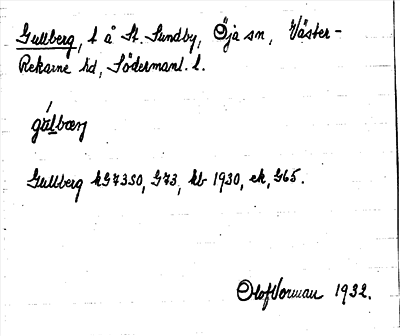 Gullberg, t å St. Sundby, Öja sn, Väster-
Rekarne hd, Södermanl. l.
gúlbærj
Gullberg kG73SO, G73, kb 1930, ek, G65.
Olof Vorman 1932.